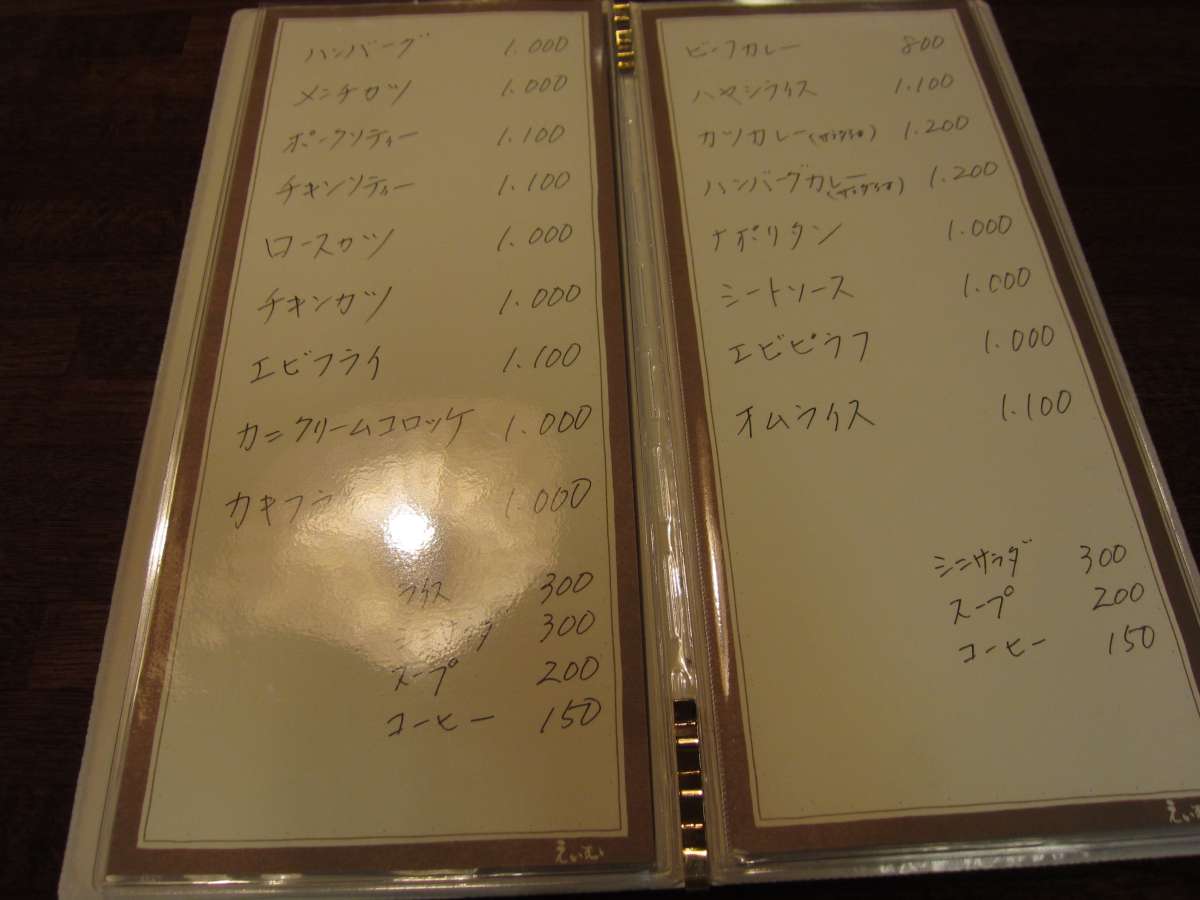 ハンバーグ 1.000
メンチカツ 1.000
ポークソティー 1.100
チキンソティー 1.100
ロースカツ 1.000
チキンカツ 1.000
エビフライ 1.100
カニクリームコロッケ 1.000
カキフライ 1.000
ライス 300
ミニサラダ 300
スープ 200
コーヒー 150
えいむ
ビーフカレー 800
ハヤシライス 1.100
カツカレー(サラダ付) 1.200
ハンバーグカレー(サラダ付) 1.200
ナポリタン 1.000
ミートソース 1.000
エビピラフ 1.000
オムライス 1.100
ミニサラダ 300
スープ 200
コーヒー 150
えいむ